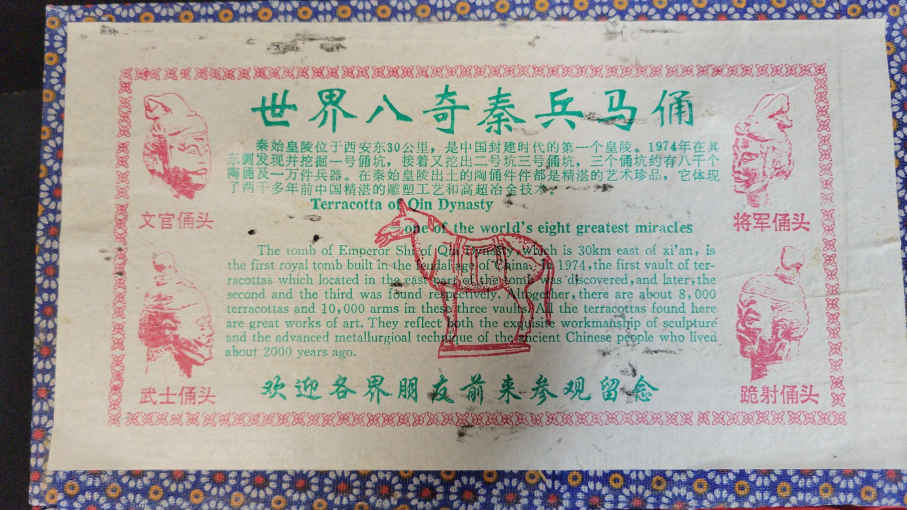 世界八奇秦兵马俑
秦始皇陵位于西安东30公里，是中国封建时代的第一个皇陵。1974年在其
东侧发现并挖掘一号俑坑，接着又挖出二号坑三号俑坑，三个俑坑约有八千个
陶俑及一万件兵器。在秦始皇陵出土的陶俑件件都是精湛的艺术珍品，它体现
了两千多年前中国精湛的雕塑工艺和高超冶金技术。
Terracotta of Qin Dynasty
one of the world's eight greatest miracles
The tomb of Emperor Shi of Qin Dynasty, which is 30km east of xi'an, is
the first royal tomb built in the feudal age of China. In 1974, the first vault of ter-
racottas which located in the east part of the tomb was discovered, and later, the
second and the third was found respectively. Altogether, there are about 8,000
terracottas and 10,000 arms in these three vaults. All the terracottas found here
are great works of art. They reflect both the exquisite workmanship of sculpture
and the advanced metallurgioal technique of the ancient Chinese people who lived
about 2000 years ago.
欢迎各界朋友前来参观留念
文官俑头
将军俑头
武士俑头
跪射俑头